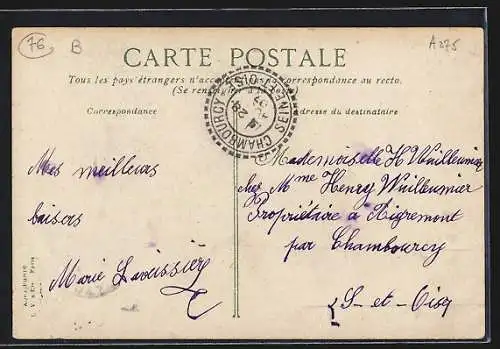 76
B
A275
CARTE POSTALE
Tous les pays étrangers n'acceptent pas la correspondance au recto.
(Se renseigner à la Poste)
Correspondance
Adresse du destinataire
CHAMBOURCY SEINE-ET-OISE
Mes meilleurs
baisers
Marie
Mademoiselle H Wuilleumier
chez Mme Henry Wuilleumier
Propriétaire à Aigremont
par Chambourcy
S-et-Oise